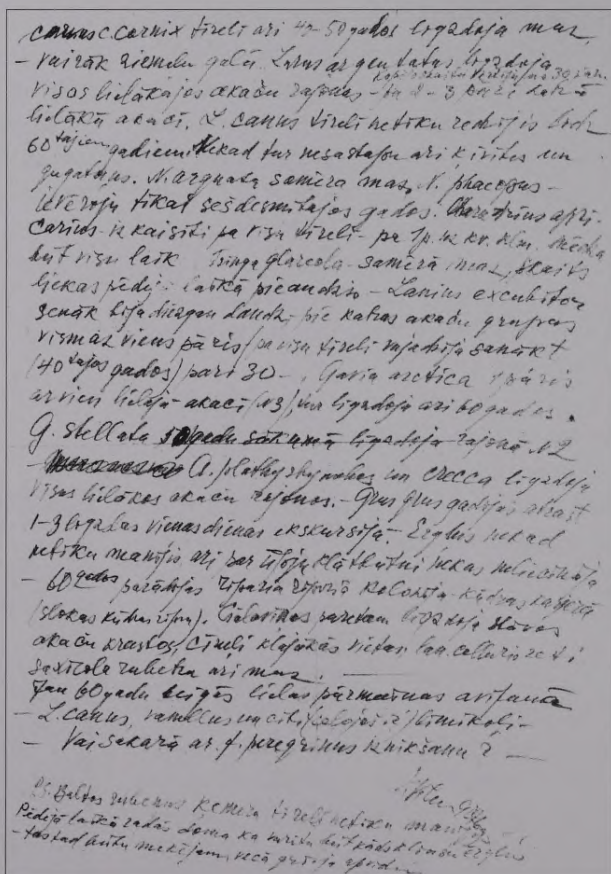 corvus c. cornix tīrelī arī 40-50 gados ligzdoja maz,
- vairāk ziemeļu galā. Larus argentatus ligzdoja
visos lielākajos akaču rajonos - 2 - 3 pāri katrā
lielākā akacī. L. canus tīrelī netiku redzējis līdz
60 tajiem gadiem. Nekad tur nesastapu arī ķīvītes un
gugatņus. N. arquata samērā maz, N. phaeopus -
ievēroju tikai sešdesmitajos gados. Charadrius apri-
carius - izkaisīti pa visu tīreli - pa 1 p. uz kv. klm.
būt visu laik Tringa glareola samērā maz, skaits
liekas pēdējā laikā pieaudzis - Lanius excubitor
senāk bija diezgan daudz, pie katras akaču grupas
vismaz viens pāris / pa visu tīreli vajadzēja sanākt
(40 tajos gados) pāri 30 -. Gavia arctica 1 pāris
ar vien lielajā akacī (N3), tur ligzdoja arī 60 gados.
G. stellata 50 gadu sākumā ligzdoja rajonā N2
- A. plathyrhynchos un crecca ligzdoja
visos lielākos akaču rajonos. - Grus grus gadījās atrast
1-3 ligzdas vienas dienas ekskursijā. - Ērgļus nekad
netiku manījis arī par ūpju klātbūtni nekas neliecināja
- 60 gados parādījās riparia riparia kolonija kūdras karjerā
(Slokas kūdras ). Cielavas paretam ligzdoja stāvos
akaču krastos, cīruļi klajākās vietās, Lan. collurio reti
saxicola rubetra arī maz.
Jau 60 gadu beigās lielas pārmaiņas avifaunā
- L. canus, vanellus un citi (ceļojoši) limikoli -
- Vai sakarā ar f. peregrinus iznīkšanu? -
PS. Baltos rubeņus Ķemeru tīrelī netiku manījis
Pēdējā laikā radās doma ka varētu būt kāds klinšu ērglis
- tas tad būtu meklējams vecā